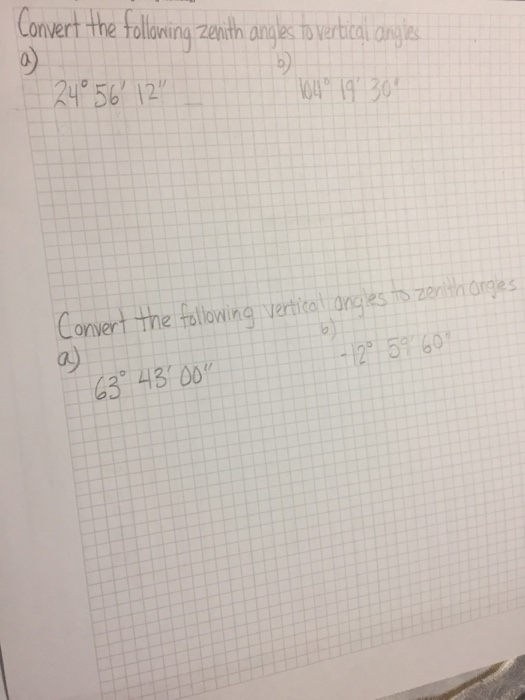 Convert the following zenith angles to vertical angles
a)
b)
24° 56' 12"
104° 19' 30"
Convert the following vertical angles to zenith angles
a)
b)
63° 43' 00"
-12° 59' 60"